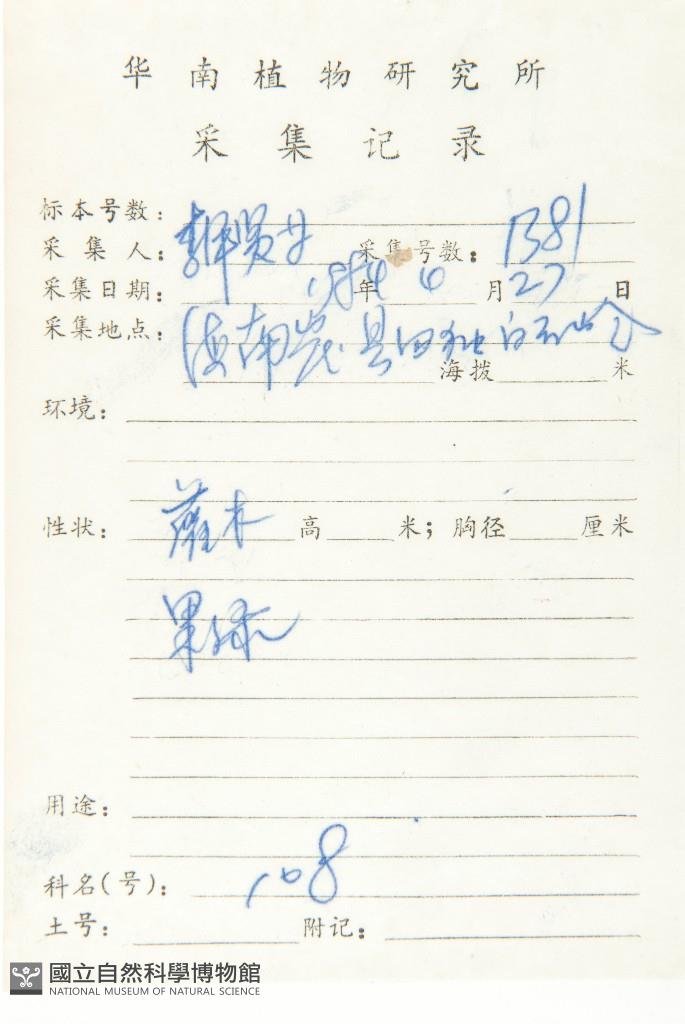 华南植物研究所
采集记录
标本号数：
采集人： 采集号数： 1381
采集日期： 1984年 4月27日
采集地点： 海南 县 白石山
海拨 米
环境：
性状： 灌木 高 米；胸径 厘米
果绿
用途：
科名(号)： 108
土号： 附记：
國立自然科學博物館
NATIONAL MUSEUM OF NATURAL SCIENCE